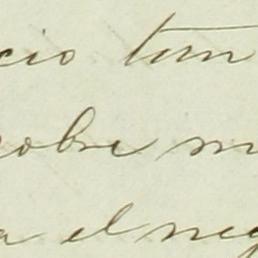 cio tem
sobre m
a el neg